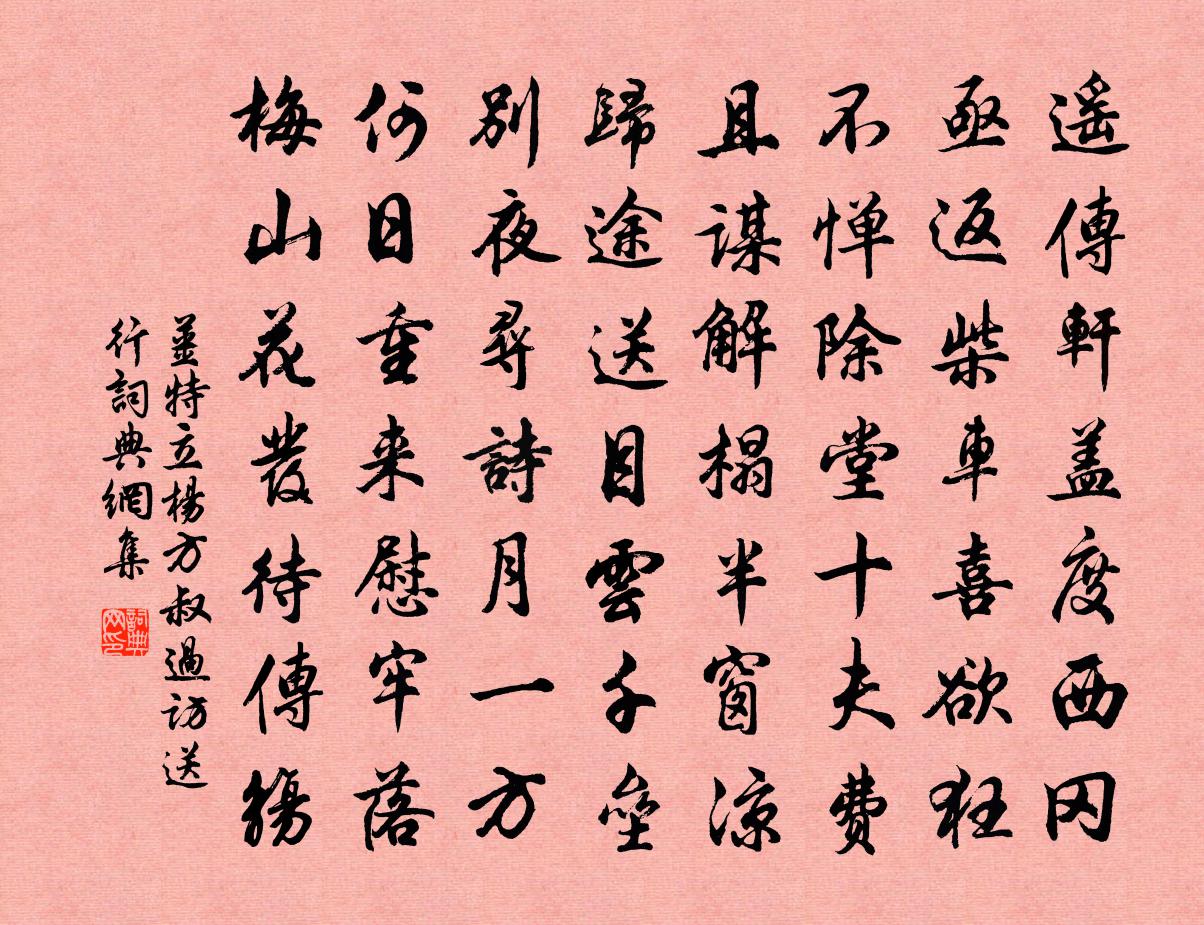 遥傳軒盖度西冈
亟返柴車喜欲狂
不惮除堂十夫費
且謀解榻半窗涼
歸途送目雲千壘
別夜尋詩月一方
何日重来慰牢落
梅山花發待傳觴
薑特立楊方叔過訪送
行詞典網集
詞典
网印